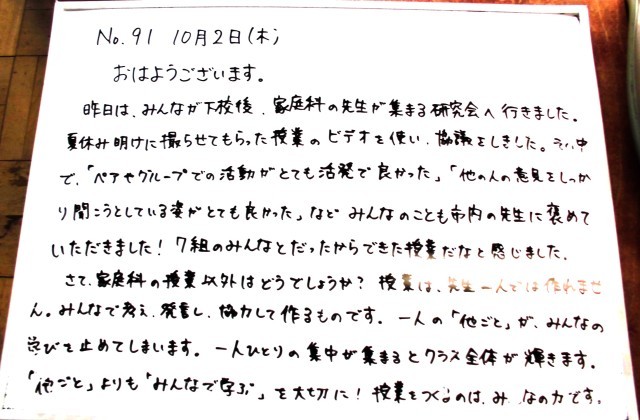 No.91 10月2日(木)
おはようございます。
昨日は、みんなが下校後、家庭科の先生が集まる研究会へ行きました。
夏休み明けに撮らせてもらった授業のビデオを使い、協議をしました。その中
で、「ペアやグループでの活動がとても活発で良かった」「他の人の意見をしっか
り聞こうとしている姿がとても良かった」など みんなのことも市内の先生に褒めて
いただきました！7組のみんなとだったからできた授業だなと感じました。
さて、家庭科の授業以外はどうでしょうか？授業は、先生一人では作れませ
ん。みんなで考え、発言し、協力して作るものです。一人の「他ごと」が、みんなの
学びを止めてしまいます。一人ひとりの集中が集まるとクラス全体が輝きます。
「他ごと」よりも「みんなで学ぶ」を大切に！授業をつくるのは、み なの力です。